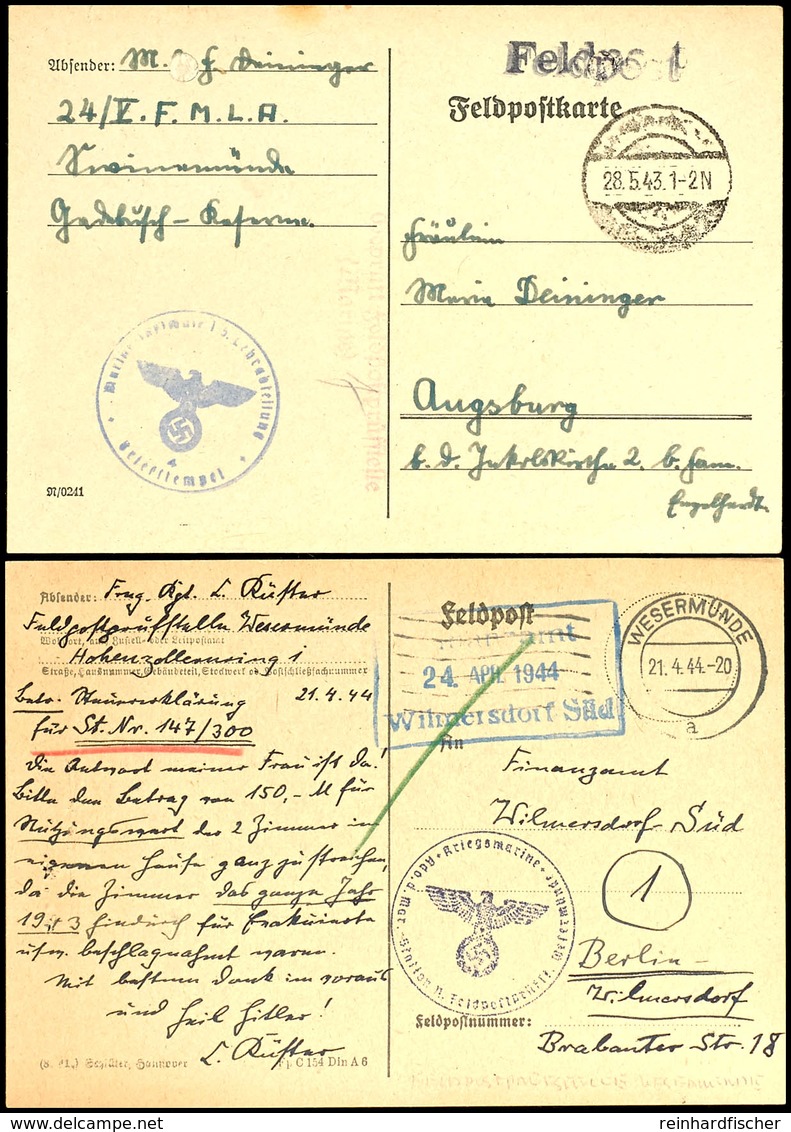 Absender: M. Deininger
24/V. F. M. L. A.
Swinemünde
Gadebusch-Kaserne.
Feldpost
Feldpostkarte
28.5.43.1-2N
Fräulein
Maria Deininger
Augsburg
b. d. 2 b. Fam.
Engelhardt.
Briefstempel
N/0241
Absender: L. Rüster
Feldpostprüfstelle Wesermünde
Wohnort, auch Zustell- oder Leitpostamt
Hohenzollernring 1
Straße, Hausnummer, Gebäudeteil, Stockwerk od. Postschließfachnummer
Betr. Steuererklärung 21.4.44
für St. Nr. 147/300
Die Antwort meiner Frau ist da!
Bitte den Betrag von 150,- M für
Nutzungswert der 2 Zimmer im
eigenen Hause ganz zu streichen,
da die Zimmer das ganze Jahr
1943 hindurch für Evakuierte
usw. beschlagnahmt waren.
Mit bestem Dank im voraus
und Heil Hitler!
L. Rüster
Hannover
C 154 Din A 6
Feldpost
Finanzamt
24. APR. 1944
Wilmersdorf Süd
WESERMÜNDE
21.4.44.-20
a
An
Finanzamt
Wilmersdorf-Süd
1
Kriegsmarine
Berlin-
Wilmersdorf
Feldpostnummer:
Brabanter Str. 18
reinhardfischer